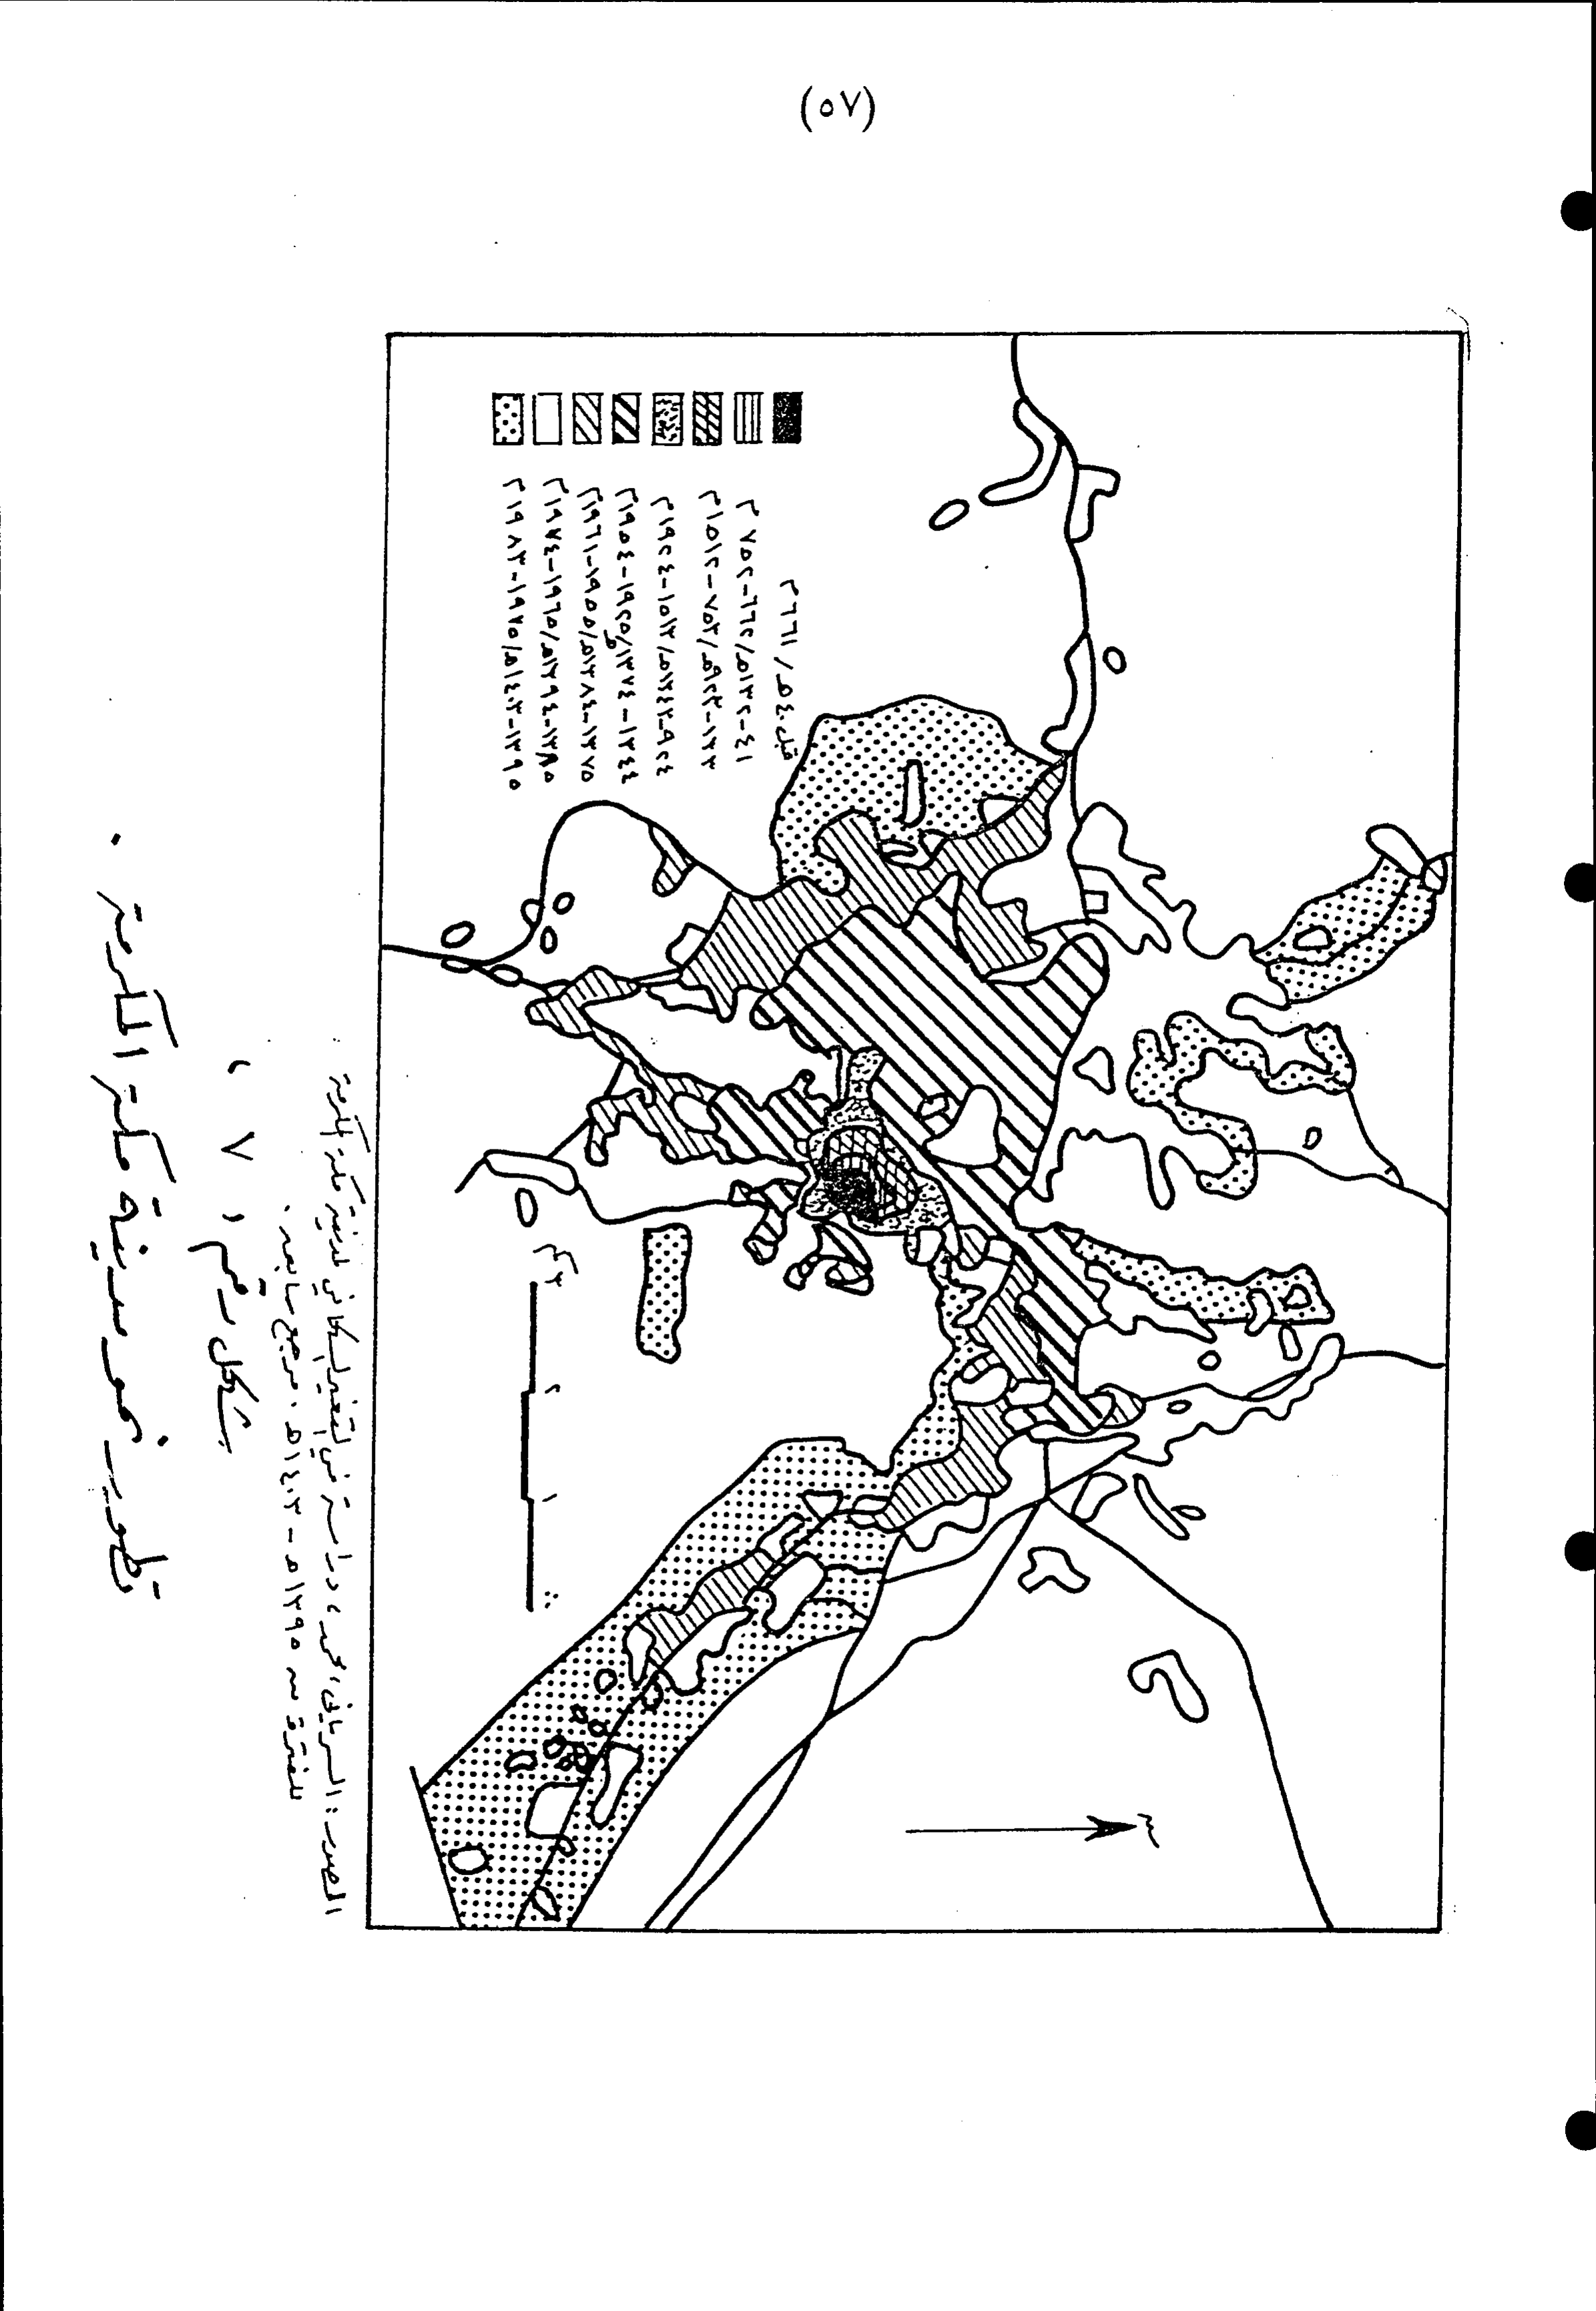 (٥٧)
قبل ٤٠هـ/٦٦١م
٤١-١٣٢هـ/٦٦٢-٧٥٢م
١٣٣-٩٢٣هـ/٧٥٣-١٥١٢م
٩٢٤-١٣٤٣هـ/١٥١٣-١٩٢٤م
١٣٤٤-١٣٧٤هـ/١٩٢٥-١٩٥٤م
١٣٧٥-١٣٨٤هـ/١٩٥٥-١٩٦١م
١٣٨٥-١٣٩٤هـ/١٩٦٥-١٩٧٤م
١٣٩٥-١٤٠٣هـ/١٩٧٥-١٩٨٣م
٣كم ٢ ١ ٠
المصدر: السرياني، محمد، دراسة في التغير لمدينة مكة المكرمة
للفترة من ١٣٩٥هـ - ١٤٠٣هـ، مرجع سابق.
شكل رقم (٧)
تطور نمو مدينة مكة المكرمة.